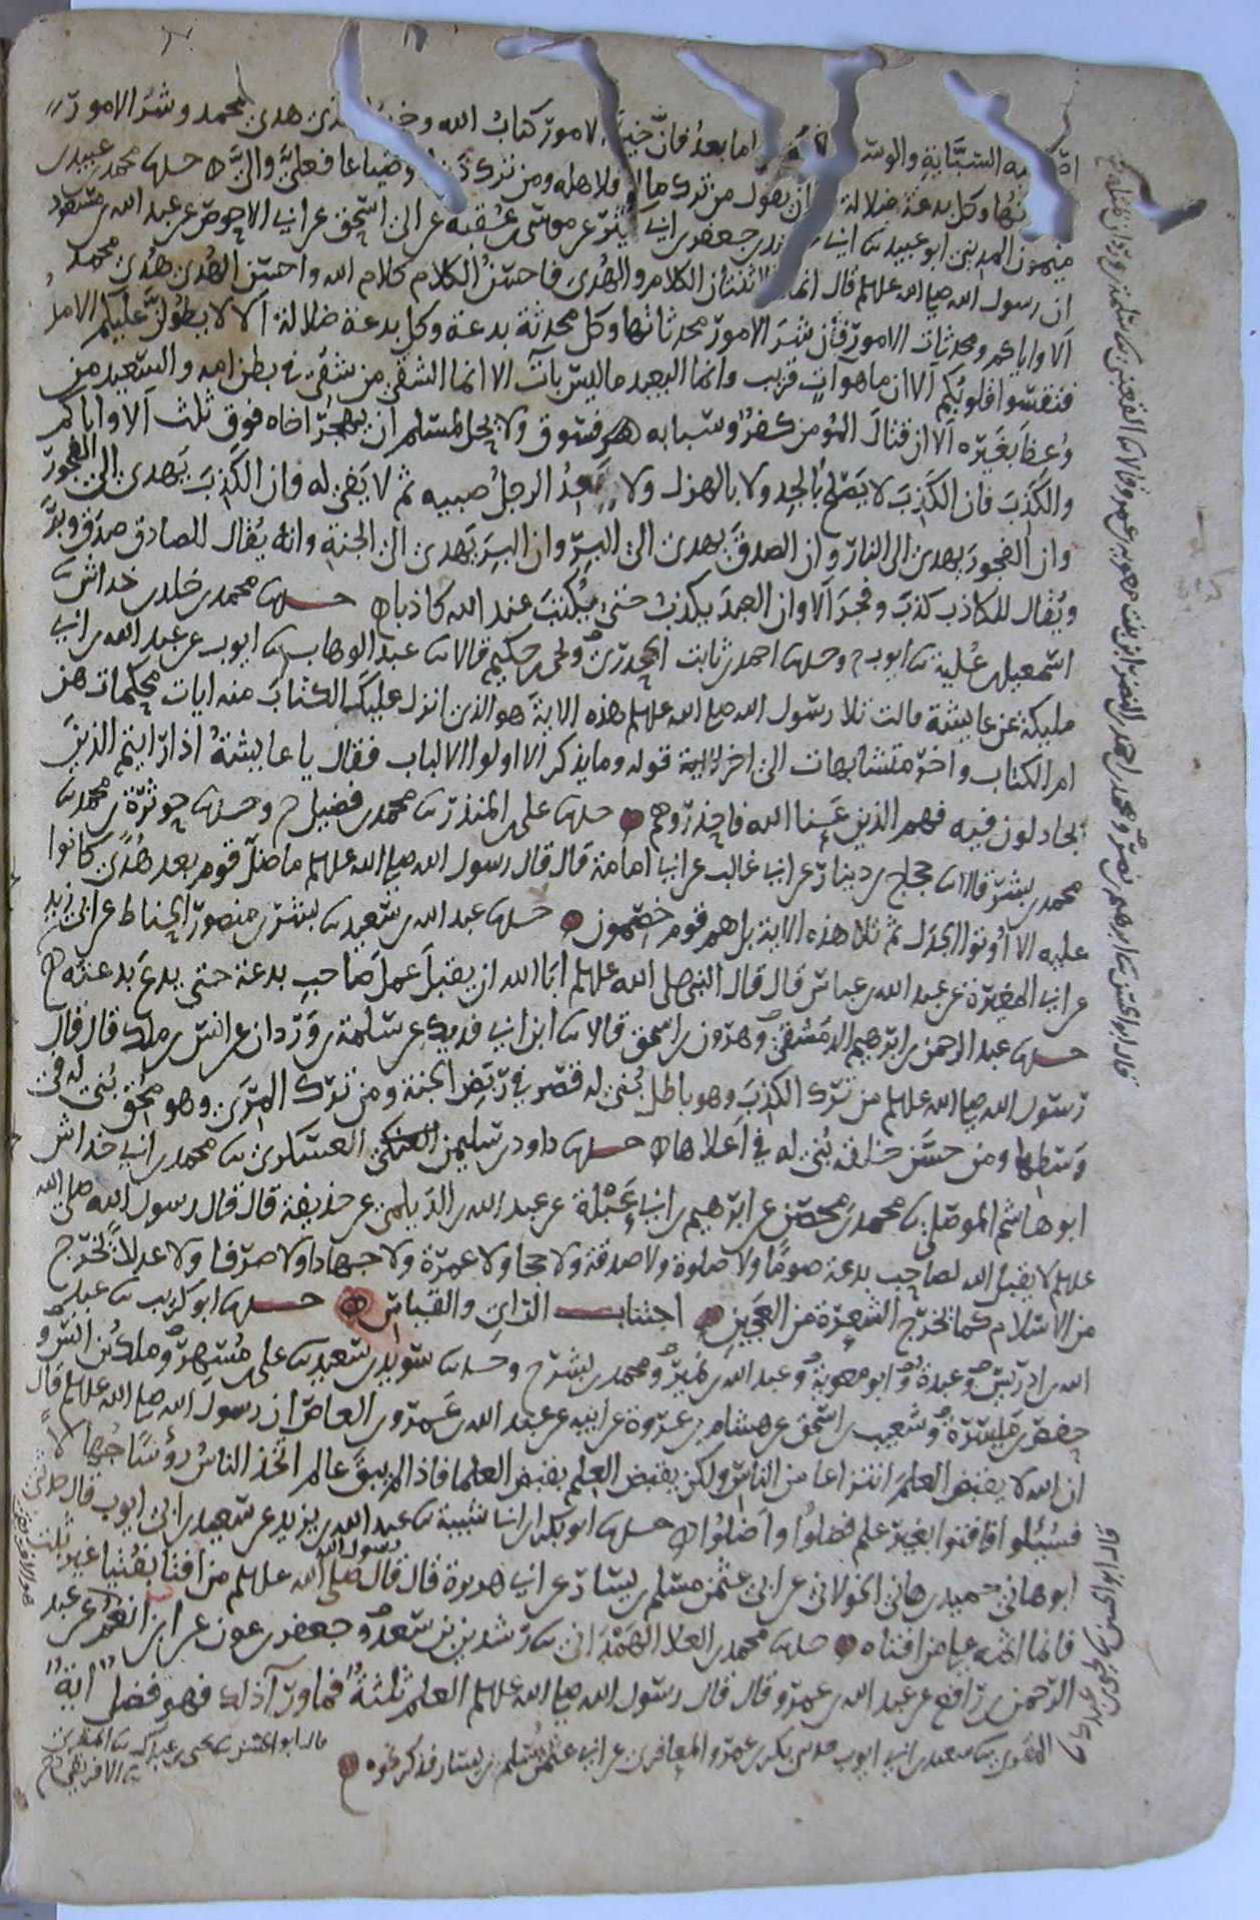 السبابة والوسطى اما بعد فان خير الامور كتاب الله وخير الهدى هدى محمد وشر الامور
محدثاتها وكل بدعة ضلالة وكان يقول من ترك مالا فلاهله ومن ترك دينا او ضياعا فعلي والي حدثنا محمد بن عبيد بن
ميمون المديني ابو عبيد ثنا ابي عن محمد بن جعفر بن ابي كثير عن موسى بن عقبة عن ابي اسحق عن ابي الاحوص عن عبد الله بن مسعود
ان رسول الله صلى الله عليه وسلم قال انما هما اثنتان الكلام والهدى فاحسن الكلام كلام الله واحسن الهدى هدى محمد
الا واياكم ومحدثات الامور فان شر الامور محدثاتها وكل محدثة بدعة وكل بدعة ضلالة الا لا يطولن عليكم الامد
فتقسوا قلوبكم الا ان ما هو آت قريب وانما البعيد ما ليس بآت الا انما الشقي من شقي في بطن امه والسعيد من
وعظ بغيره الا ان قتال المؤمن كفر وسبابه فسوق ولا يحل لمسلم ان يهجر اخاه فوق ثلث الا واياكم
والكذب فان الكذب لا يصلح بالجد ولا بالهزل ولا يعد الرجل صبيه ثم لا يفي له وان الكذب يهدي الى الفجور
وان الفجور يهدي الى النار وان الصدق يهدي الى البر وان البر يهدي الى الجنة وانه يقال للصادق صدق وبر
ويقال للكاذب كذب وفجر الا وان العبد يكذب حتى يكتب عند الله كذابا حدثنا محمد بن خالد بن خداش ثنا
اسمعيل بن علية ثنا ايوب ح وحدثنا احمد بن ثابت الجحدري ويحيى بن حكيم قالا ثنا عبد الوهاب ثنا ايوب عن عبد الله بن ابي
مليكة عن عايشة قالت تلا رسول الله صلى الله عليه وسلم هذه الاية هو الذي انزل عليك الكتاب منه ايات محكمات هن
ام الكتاب واخر متشابهات الى اخر الاية قوله وما يذكر الا اولوا الالباب فقال يا عايشة اذا رايتم الذين
يجادلون فيه فهم الذين عنا الله فاحذروهم حدثنا علي بن المنذر ثنا محمد بن فضيل ح وحدثنا حوثرة بن محمد ثنا
محمد بن بشر قالا ثنا حجاج بن دينار عن ابي غالب عن ابي امامة قال قال رسول الله صلى الله عليه وسلم ما ضل قوم بعد هدى كانوا
عليه الا اوتوا الجدل ثم تلا هذه الاية بل هم قوم خصمون حدثنا عبد الله بن سعيد ثنا بشر بن منصور الحناط عن ابي زيد
عن ابي المغيرة عن عبد الله بن عباس قال قال النبي صلى الله عليه وسلم ابا الله ان يقبل عمل صاحب بدعة حتى يدع بدعته
حدثنا عبد الرحمن بن ابرهيم الدمشقي وهرون بن اسحق قالا ثنا ابن ابي فديك عن سلمة بن وردان عن انس بن ملك قال قال
رسول الله صلى الله عليه وسلم من ترك الكذب وهو باطل بني له قصر في ربض الجنة ومن ترك المرى وهو محق بني له في
وسطها ومن حسن خلقه بني له في اعلاها حدثنا داود بن سليمن العسكري ثنا محمد بن ابي خداش
ابو هاشم الموصلي ثنا محمد بن محصن عن ابرهيم بن ابي عبلة عن عبد الله بن الديلمي عن حذيفة قال قال رسول الله صلى الله
عليه وسلم لا يقبل الله لصاحب بدعة صوما ولا صلوة ولا صدقة ولا حجا ولا عمرة ولا جهادا ولا صرفا ولا عدلا يخرج
من الاسلام كما تخرج الشعرة من العجين اجتناب الراي والقياس حدثنا ابو كريب ثنا عبد
الله بن ادريس وعبدة وابو معوية وعبد الله بن نمير ومحمد بن بشر ح وحدثنا سويد بن سعيد ثنا علي بن مسهر وملك بن انس و
حفص بن ميسرة وشعيب بن اسحق عن هشام بن عروة عن ابيه عن عبد الله بن عمرو بن العاص ان رسول الله صلى الله عليه وسلم قال
ان الله لا يقبض العلم انتزاعا من الناس ولكن يقبض العلم بقبض العلما فاذا لم يبق عالم اتخذ الناس رؤسا جهالا
فسئلوا فافتوا بغير علم فضلوا واضلوا حدثنا ابو بكر بن ابي شيبة ثنا عبد الله بن يزيد عن سعيد بن ابي ايوب قال حدثني
ابو هاني حميد بن هاني الخولاني عن ابي عثمن مسلم بن يسار عن ابي هريرة قال قال رسول الله صلى الله عليه وسلم من افتا بفتيا غير ثبت
فانما اثمه على من افتاه حدثنا محمد بن العلا الهمداني ثنا رشدين بن سعد وجعفر بن عون عن ابن انعم عن عبد
الرحمن بن رافع عن عبد الله بن عمرو قال قال رسول الله صلى الله عليه وسلم العلم ثلثة فما ورآ ذلك فهو فضل اية